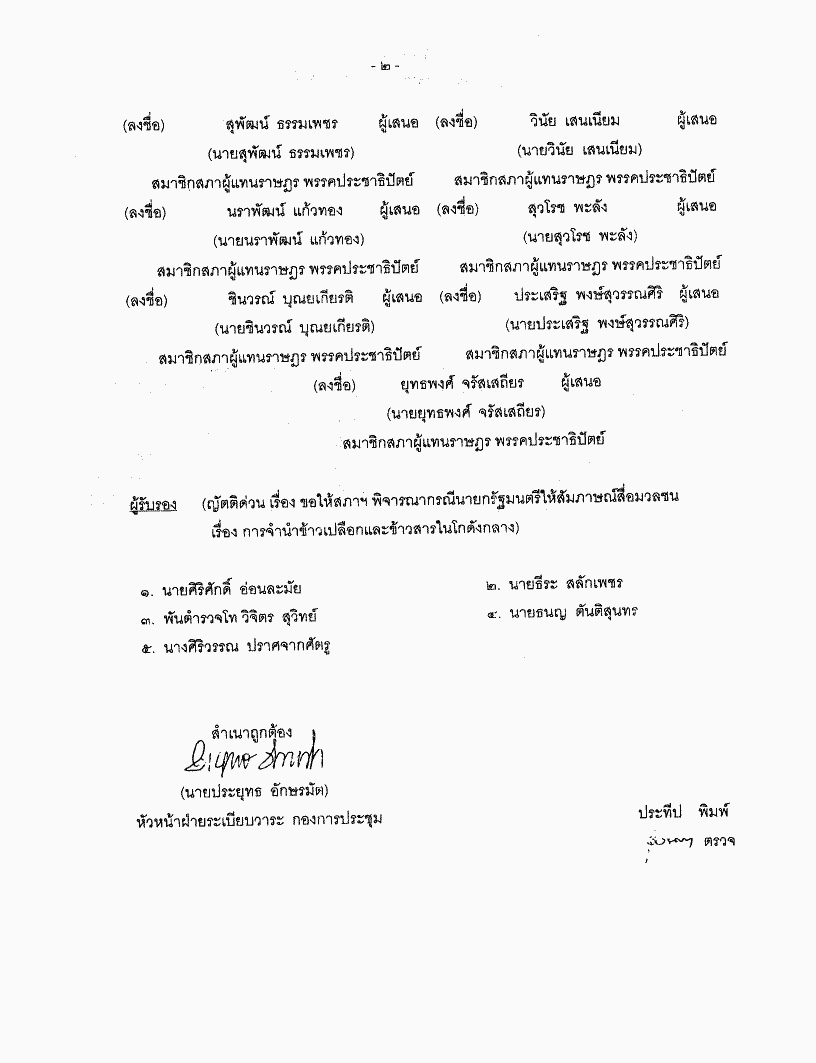 - ๒ -
(ลงชื่อ) สุพัฒน์ ธรรมเพชร ผู้เสนอ (ลงชื่อ) วินัย เสนเนียม ผู้เสนอ
(นายสุพัฒน์ ธรรมเพชร) (นายวินัย เสนเนียม)
สมาชิกสภาผู้แทนราษฎร พรรคประชาธิปัตย์ สมาชิกสภาผู้แทนราษฎร พรรคประชาธิปัตย์
(ลงชื่อ) นราพัฒน์ แก้วทอง ผู้เสนอ (ลงชื่อ) สุวโรช พะลัง ผู้เสนอ
(นายนราพัฒน์ แก้วทอง) (นายสุวโรช พะลัง)
สมาชิกสภาผู้แทนราษฎร พรรคประชาธิปัตย์ สมาชิกสภาผู้แทนราษฎร พรรคประชาธิปัตย์
(ลงชื่อ) ชินวรณ์ บุณยเกียรติ ผู้เสนอ (ลงชื่อ) ประเสริฐ พงษ์สุวรรณศิริ ผู้เสนอ
(นายชินวรณ์ บุณยเกียรติ) (นายประเสริฐ พงษ์สุวรรณศิริ)
สมาชิกสภาผู้แทนราษฎร พรรคประชาธิปัตย์ สมาชิกสภาผู้แทนราษฎร พรรคประชาธิปัตย์
(ลงชื่อ) ยุทธพงศ์ จรัสเสถียร ผู้เสนอ
(นายยุทธพงศ์ จรัสเสถียร)
สมาชิกสภาผู้แทนราษฎร พรรคประชาธิปัตย์
ผู้รับรอง (ญัตติด่วน เรื่อง ขอให้สภาฯ พิจารณากรณีนายกรัฐมนตรีให้สัมภาษณ์สื่อมวลชน
เรื่อง การจำนำข้าวเปลือกและข้าวสารในโกดังกลาง)
๑. นายศิริศักดิ์ อ่อนละมัย ๒. นายธีระ สลักเพชร
๓. พันตำรวจโท วิจิตร สุวิทย์ ๔. นายธนญ ตันติสุนทร
๕. นางศิริวรรณ ปราศจากศัตรู
สำเนาถูกต้อง
(นายประยุทธ อักษรมัต)
หัวหน้าฝ่ายระเบียบวาระ กองการประชุม
ประทีป พิมพ์
ตรวจ